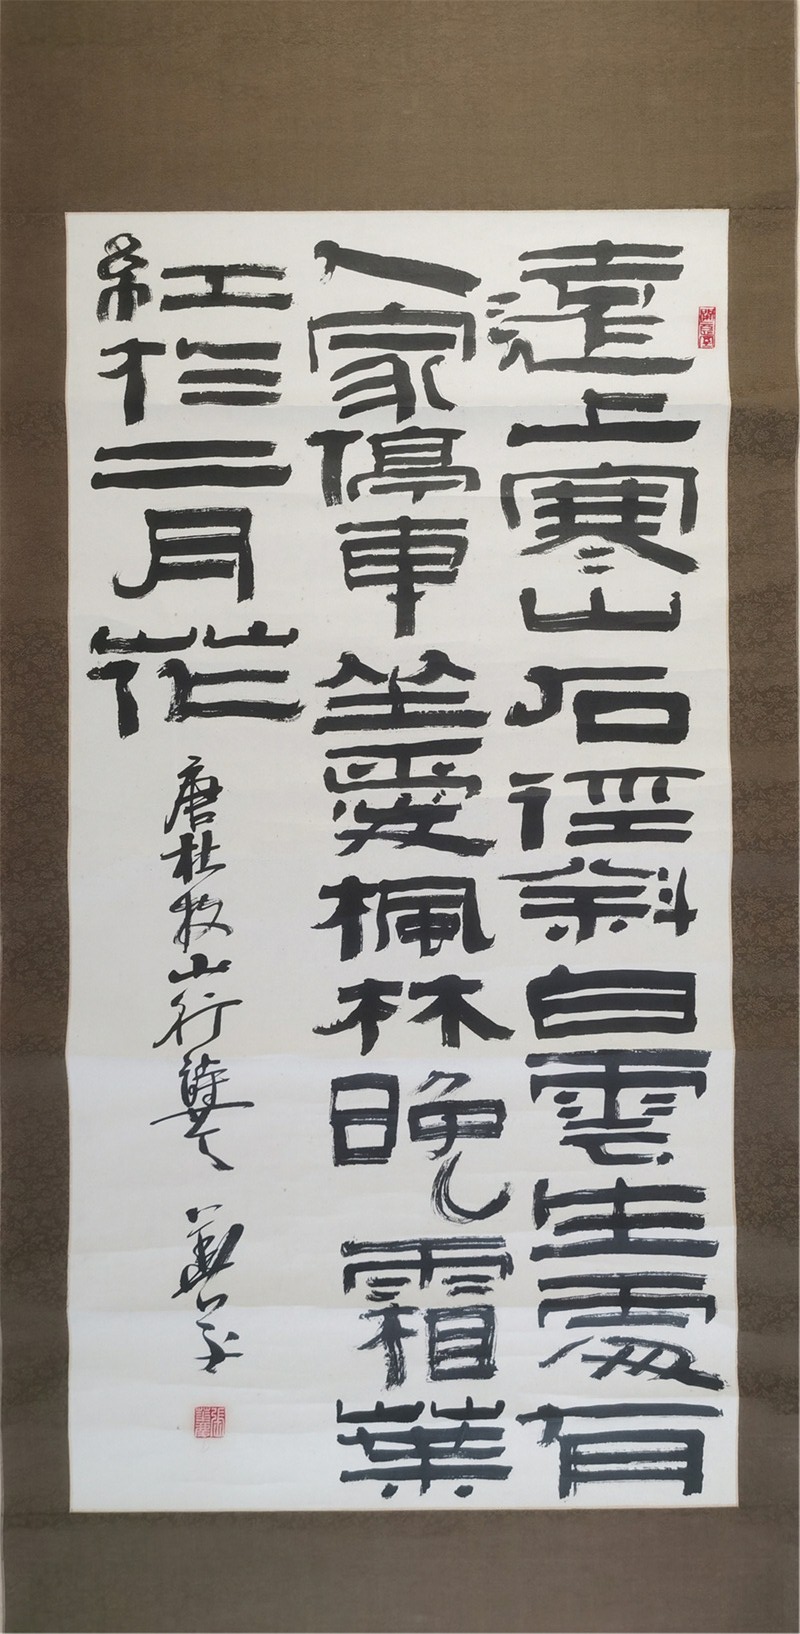 遠上寒山石徑斜白雲生處有
人家停車坐愛楓林晚霜葉
紅於二月花
唐杜牧山行詩